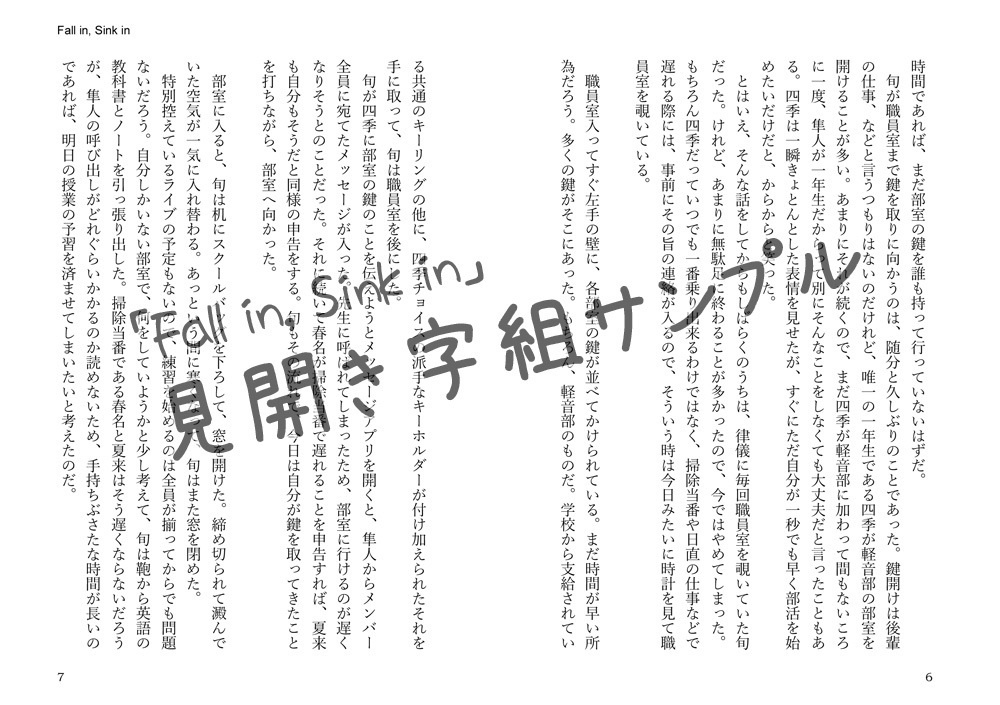 Fall in, Sink in
時間であれば、まだ部室の鍵を誰も持って行っていないはずだ。
旬が職員室まで鍵を取りに向かうのは、随分と久しぶりのことであった。鍵開けは後輩
の仕事、などと言うつもりはないのだけれど、唯一の一年生である四季が軽音部の部室を
開けることが多い。あまりにそれが続くので、まだ四季が軽音部に加わって間もないころ
に一度、隼人が一年生だからって別にそんなことをしなくても大丈夫だと言ったこともあ
る。四季は一瞬きょとんとした表情を見せたが、すぐにただ自分が一秒でも早く部活を始
めたいだけだと、からからと笑った。
とはいえ、そんな話をしてからもしばらくのうちは、律儀に毎回職員室を覗いていた旬
だった。けれど、あまりに無駄足に終わることが多かったので、今ではやめてしまった。
もちろん四季だっていつでも一番乗り出来るわけではなく、掃除当番や日直の仕事などで
遅れる際には、事前にその旨の連絡が入るので、そういう時は今日みたいに時計を見て職
員室を覗いている。
職員室入ってすぐ左手の壁に、各部室の鍵が並べてかけられている。まだ時間が早い所
為だろう。多くの鍵がそこにあった。もちろん、軽音部のものだ。学校から支給されてい
る共通のキーリングの他に、四季チョイスの派手なキーホルダーが付け加えられたそれを
手に取って、旬は職員室を後にした。
旬が四季に部室の鍵のことを伝えようとメッセージアプリを開くと、隼人からメンバー
全員に宛てたメッセージが入った。先生に呼ばれてしまったため、部室に行けるのが遅く
なりそうとのことだった。それに続いて春名が掃除当番で遅れることを申告すれば、夏来
も自分もそうだと同様の申告をする。旬もその流れで、今日は自分が鍵を取ってきたこと
を打ちながら、部室へ向かった。
部室に入ると、旬は机にスクールバッグを下ろして、窓を開けた。締め切られて澱んで
いた空気が一気に入れ替わる。あっという間に寒くなって、旬はまた窓を閉めた。
特別控えているライブの予定もないので、練習を始めるのは全員が揃ってからでも問題
ないだろう。自分しかいない部室で、何をしていようかと少し考えて、旬は鞄から英語の
教科書とノートを引っ張り出した。掃除当番である春名と夏来はそう遅くならないだろう
が、隼人の呼び出しがどれぐらいかかるのか読めないため、手持ちぶさたな時間が長いの
であれば、明日の授業の予習を済ませてしまいたいと考えたのだ。
「Fall in, Sink in」
見開き字組サンプル
7
6